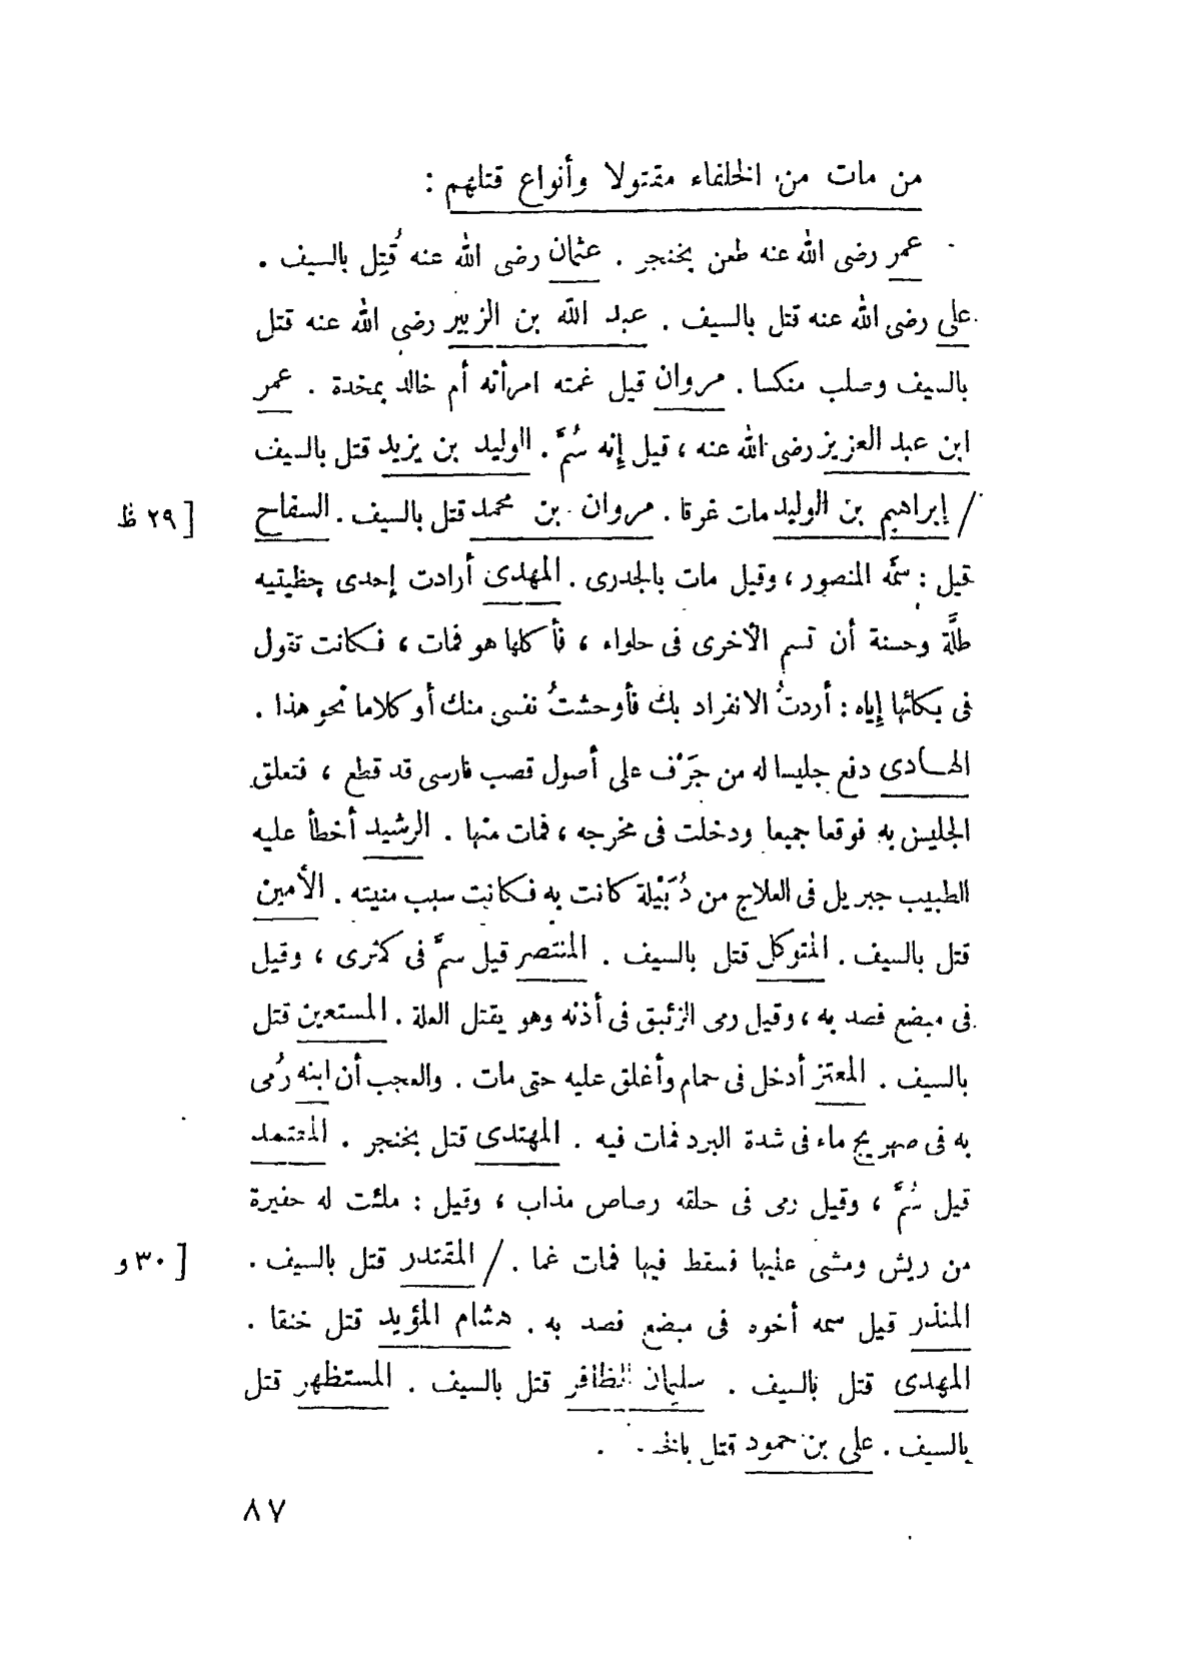 من مات من الخلفاء مقتولا وأنواع قتلهم :
عمر رضى الله عنه طعن بخنجر . عثمان رضى الله عنه قُتِل بالسيف .
على رضى الله عنه قتل بالسيف . عبد الله بن الزبير رضى الله عنه قتل
بالسيف وصلب منكسا . مروان قيل غمته امرأته أم خالد بمخدة . عمر
ابن عبد العزيز رضى الله عنه ، قيل إنه سُمَّ . الوليد بن يزيد قتل بالسيف
/ إبراهيم بن الوليد مات غرقا . مروان بن محمد قتل بالسيف . السفاح
[ ٢٩ ظ
قيل : سمَّه المنصور ، وقيل مات بالجدرى . المهدى أرادت إحدى حظيتيه
طلَّة وحسنة أن تسم الأخرى فى حلواء ، فأكلها هو فمات ، فكانت تقول
فى بكائها إياه : أردتُ الانفراد بك فأوحشتُ نفسى منك أو كلاما نحو هذا .
الهادى دفع جليسا له من جَرْف على أصول قصب فارسى قد قطع ، فتعلق
الجليس به فوقعا جميعا ودخلت فى مخرجه ، فمات منها . الرشيد أخطأ عليه
الطبيب جبريل فى العلاج من دُبَيْلة كانت به فكانت سبب منيته . الأمين
قتل بالسيف . المتوكل قتل بالسيف . المنتصر قيل سمَّ فى كمثرى ، وقيل
فى مبضع فصد به ، وقيل رمى الزئبق فى أذنه وهو يقتل العلة . المستعين قتل
بالسيف . المعتز أدخل فى حمام وأغلق عليه حتى مات . والعجب أن ابنه رُمى
به فى صهريج ماء فى شدة البرد فمات فيه . المهتدى قتل بخنجر . المعتمد
قيل سُمَّ ، وقيل رمى فى حلقه رصاص مذاب ، وقيل : ملئت له حفيرة
من ريش ومشى عليها فسقط فيها فمات غما . / المقتدر قتل بالسيف .
[ ٣٠ و
المنذر قيل سمه أخوه فى مبضع فصد به . هشام المؤيد قتل خنقا .
المهدى قتل بالسيف . سليمان الظافر قتل بالسيف . المستظهر قتل
بالسيف . على بن حمود قتل .
٨٧